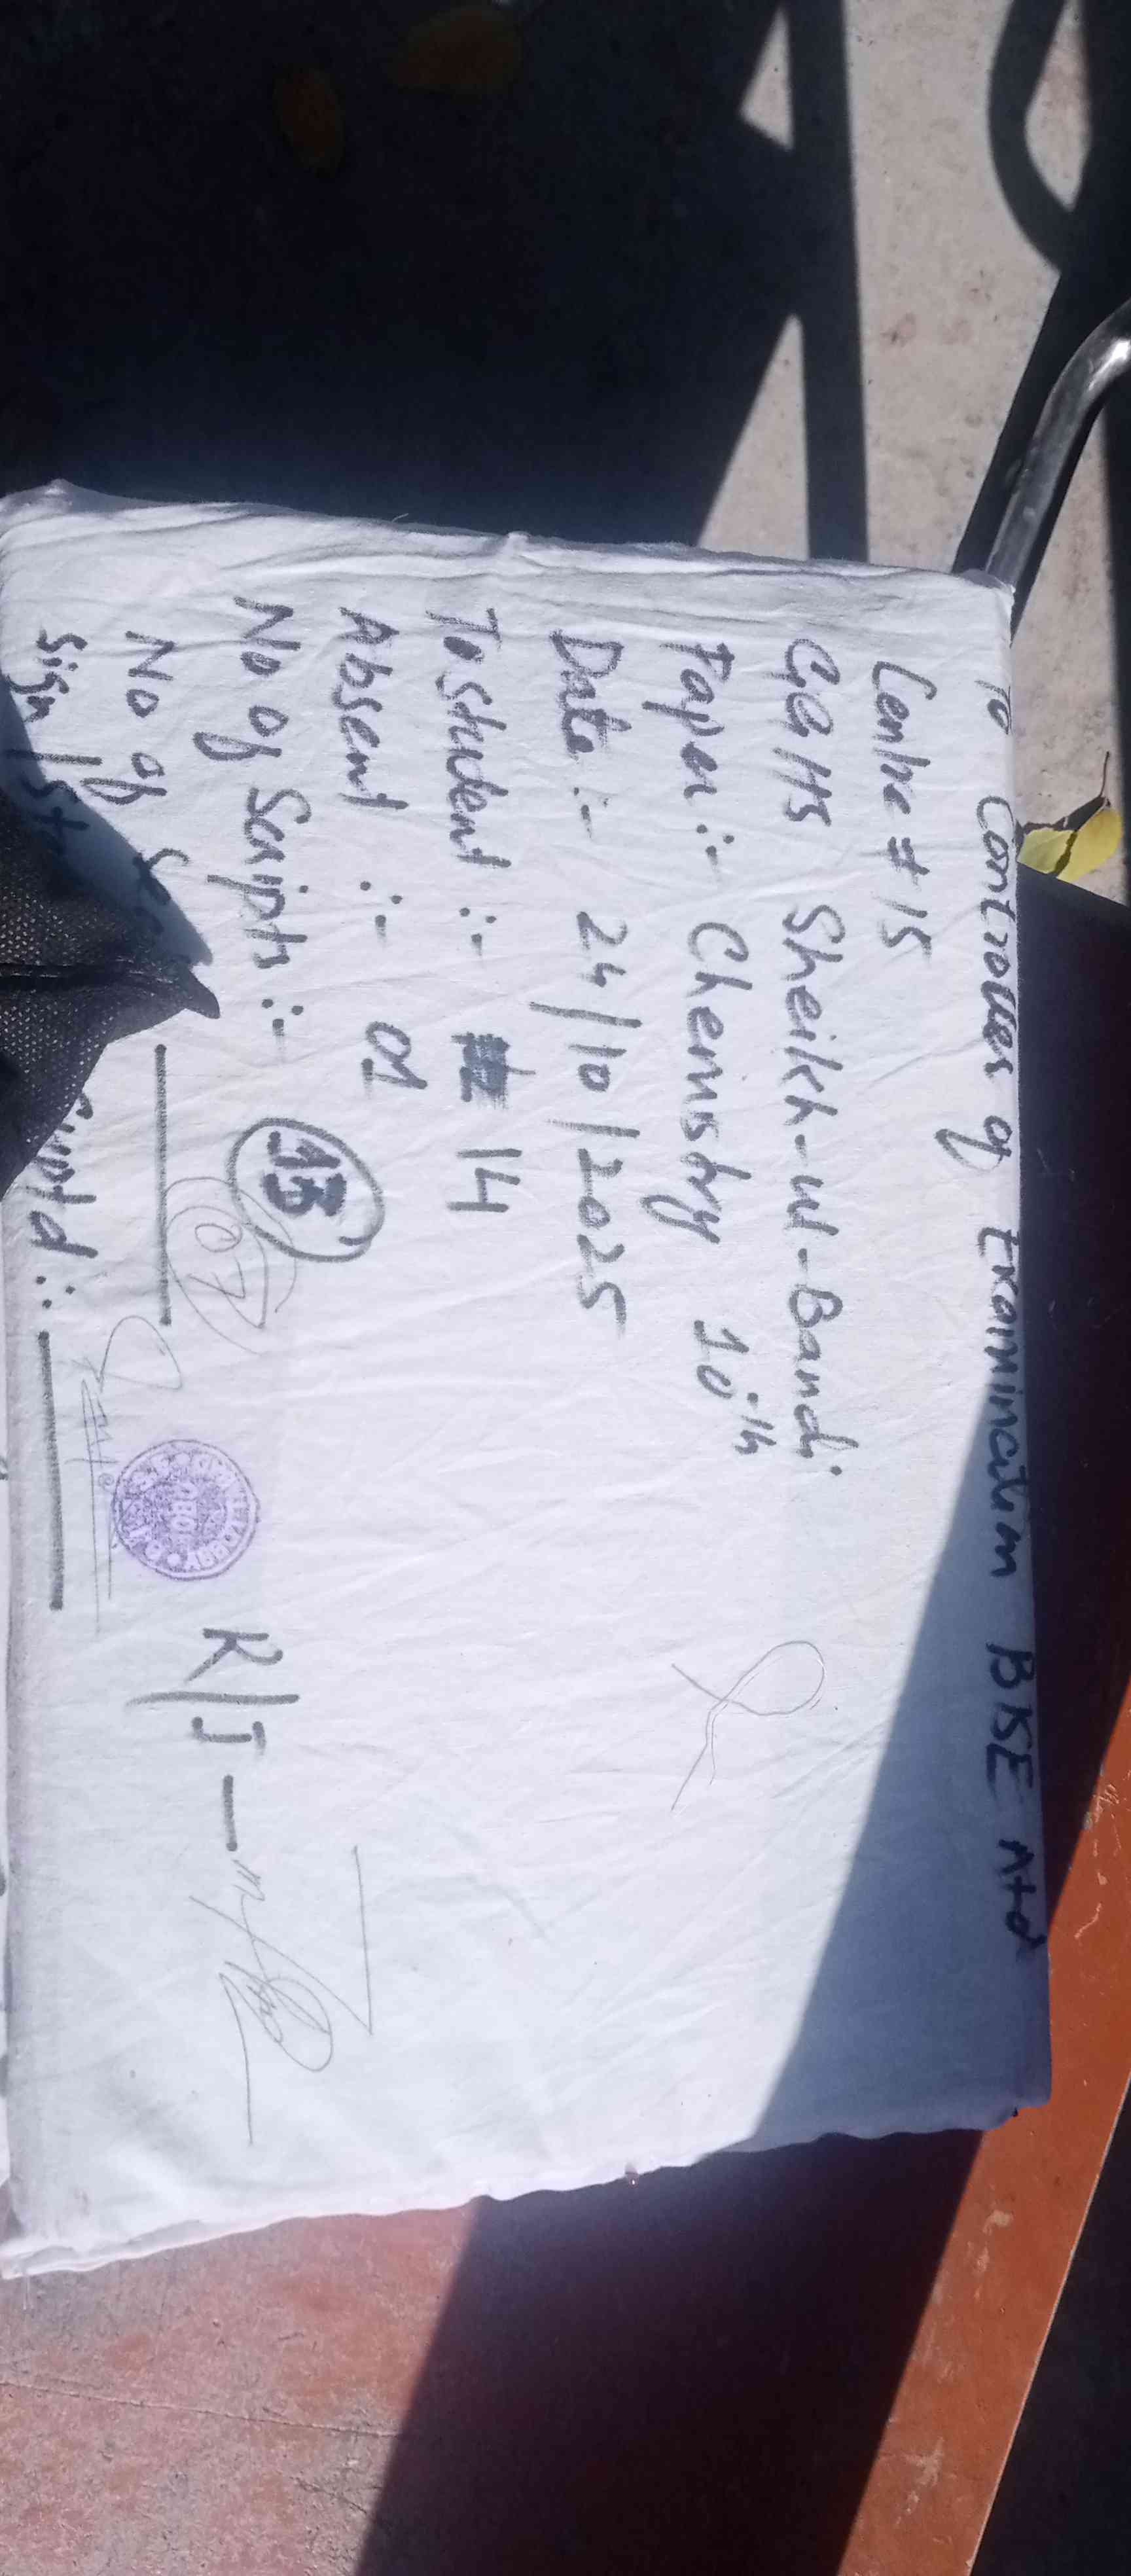 To Controller of Examination BISE Atd
Centre # 15
GGHS Sheikh-ul-Bandi
Paper :- Chemistry 10th
Date :- 24/10/2025
To Student :- 14
Absent :- 01
No of Scripts :- 13
No of
07
Sign / St
R/I —